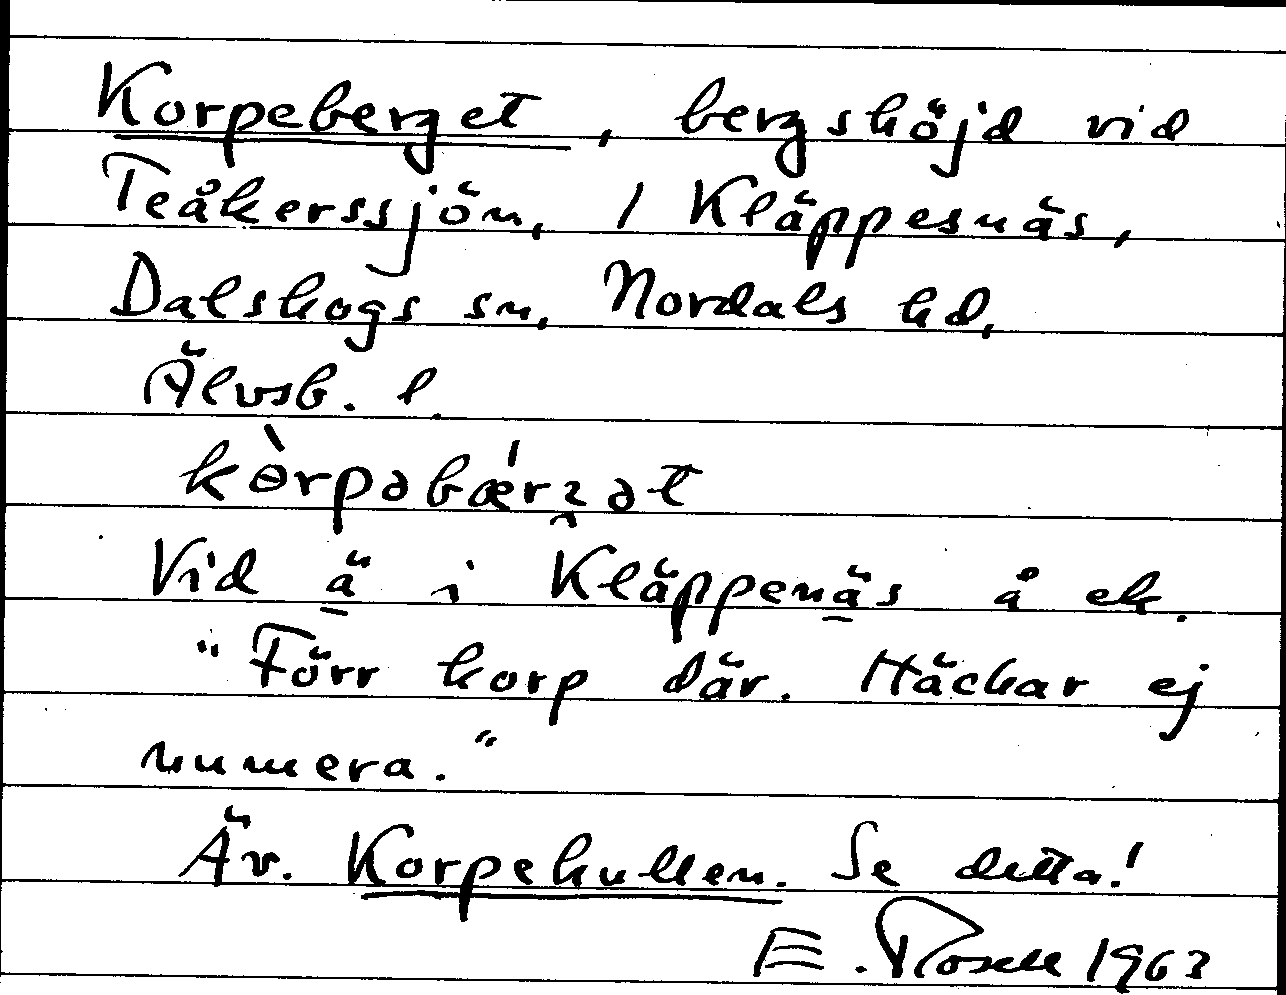 Korpeberget, bergshöjd vid
Teåkerssjön, / Kläppesnäs,
Dalskogs sn, Nordals hd,
Älvsb. l.
kòrpəbæ̍rɀ̯ət
Vid ä i Kläppenäs å ek.
"Förr korp där. Häckar ej
numera."
Äv. Korpekullen. Se detta!
E. Rosell 1963